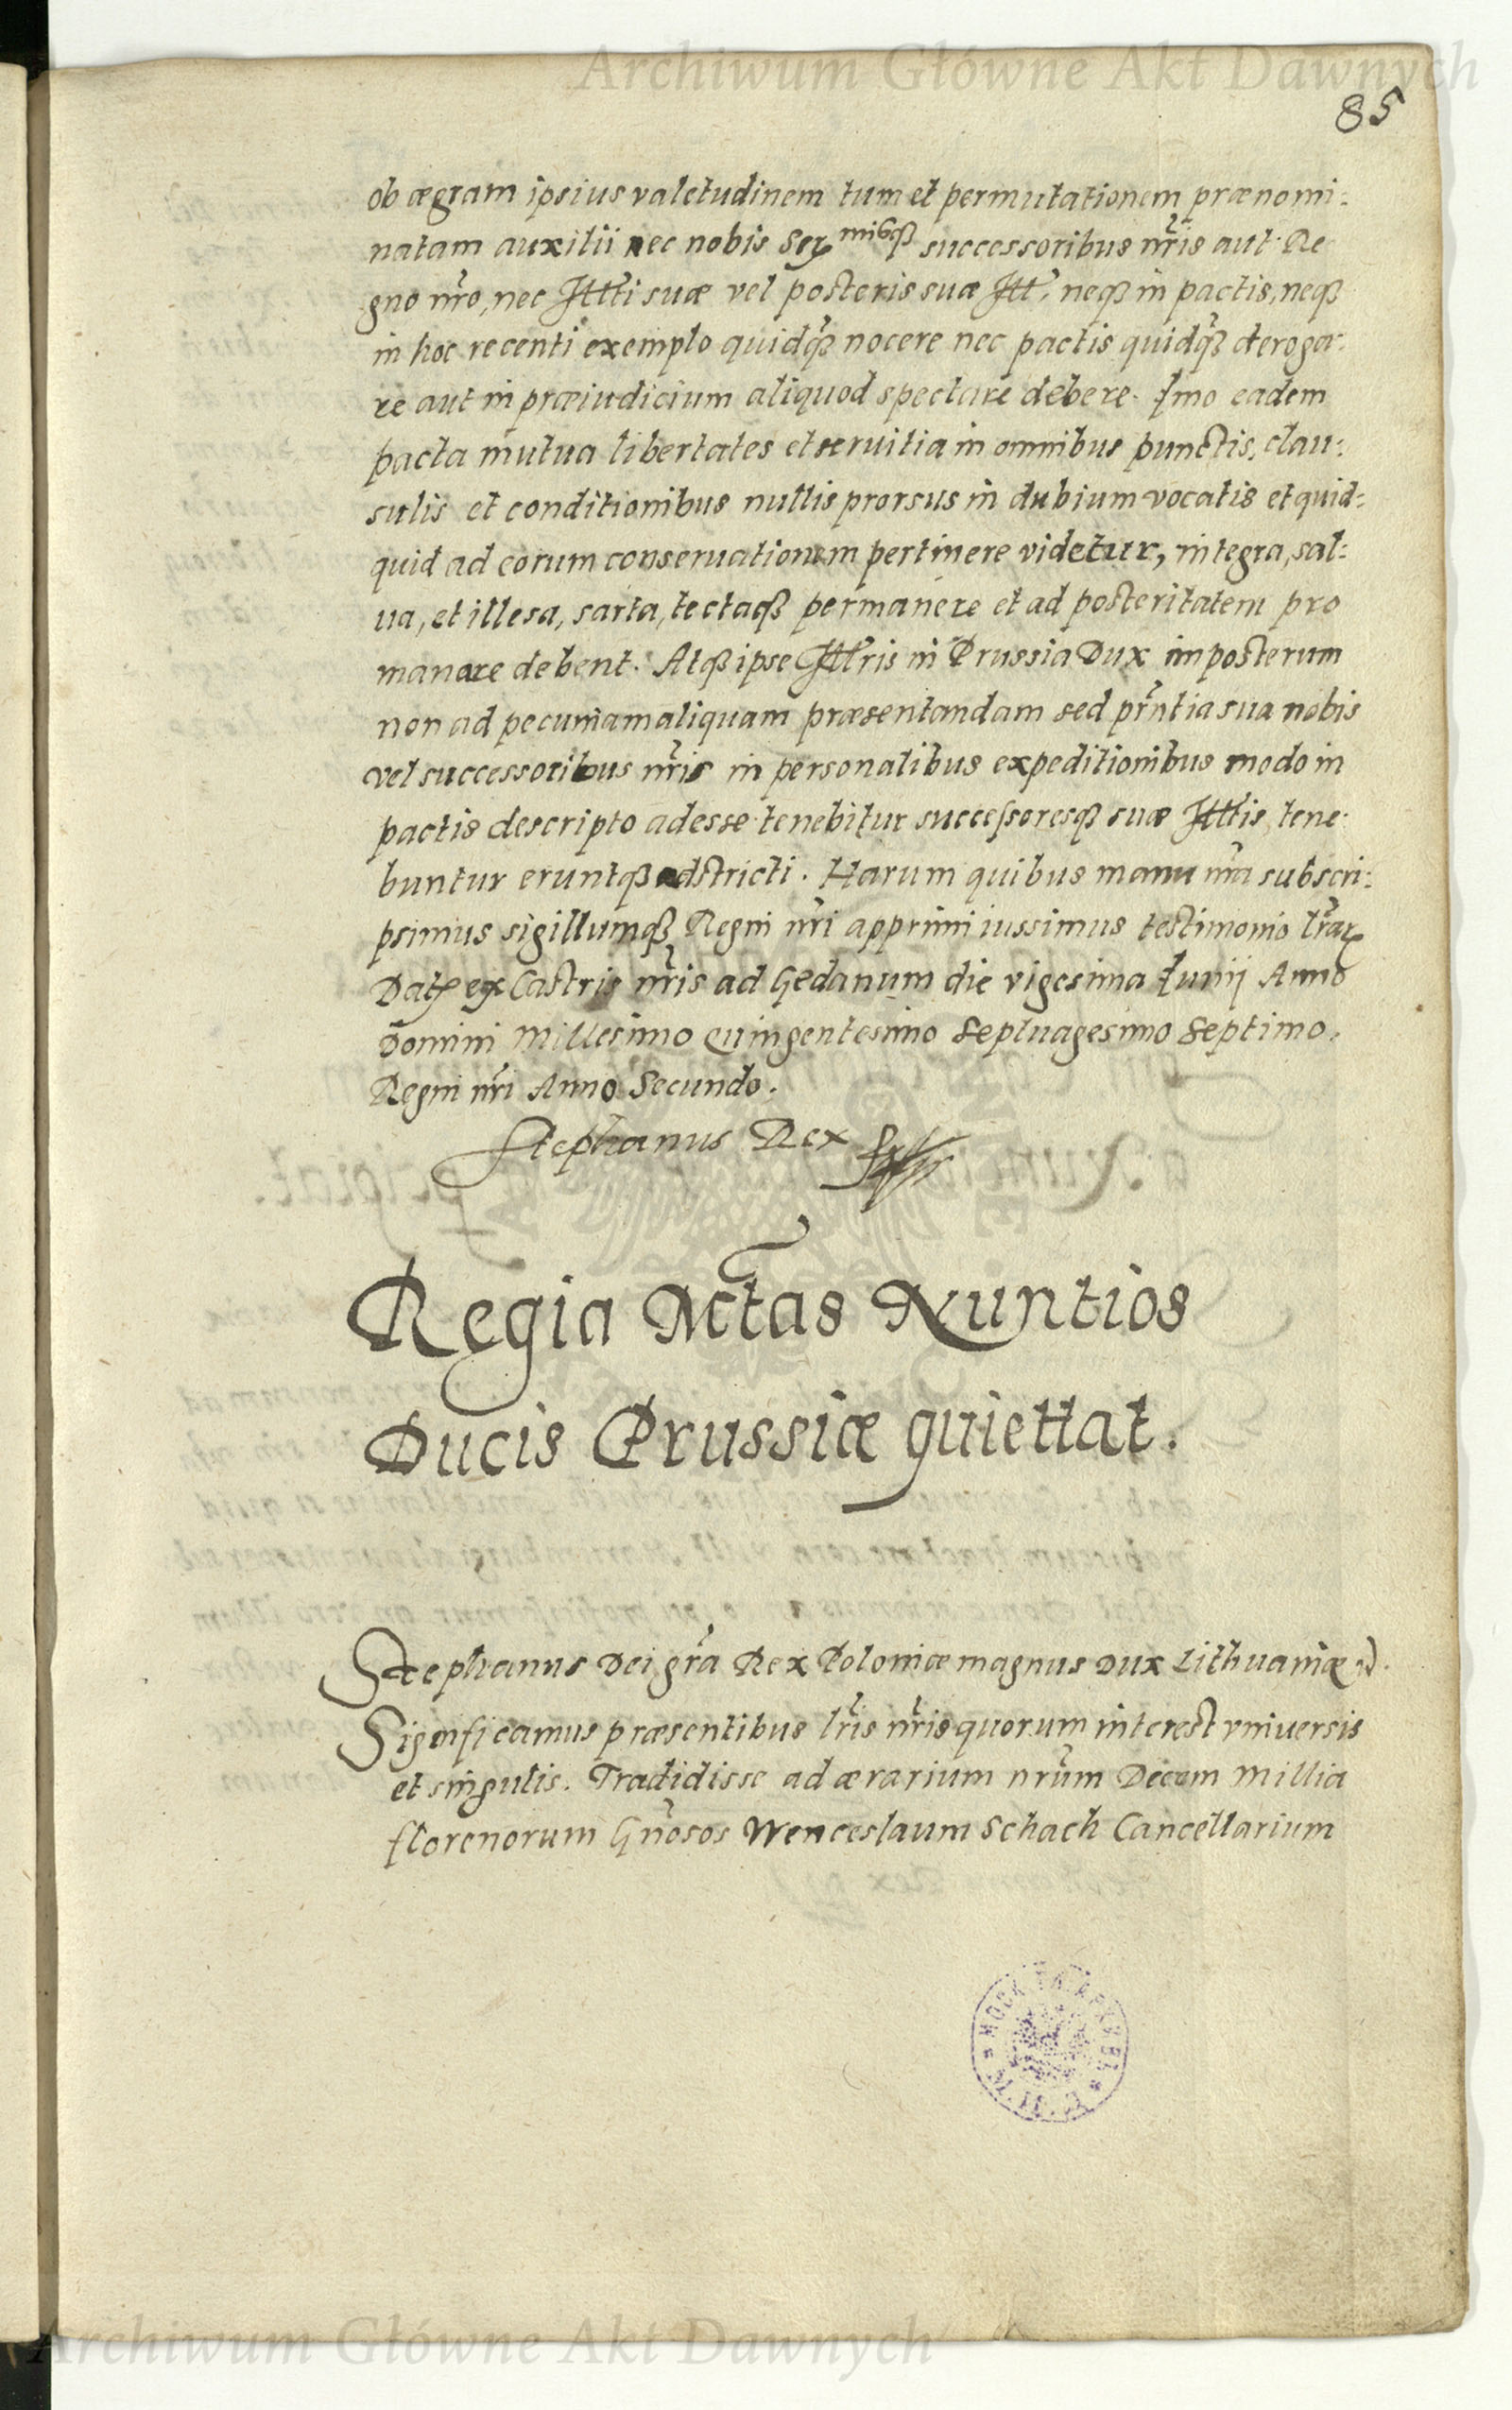 Archiwum Główne Akt Dawnych
85
ob ægram ipsius valetudinem tum et permutationem prænomi:
natam auxilii nec nobis Ser mibq successoribus nr̃is aut Re
gno nr̃o, nec Illr̃i suæ vel posteris suæ Ill. neq in pactis, neq
in hoc recenti exemplo quidq̃ nocere nec pactis quidq̃ deroga:
re aut in præiudicium aliquod spectare debere. Imo eadem
pacta mutua libertates et seruitia in omnibus punctis, clau:
sulis et conditionibus nullis prorsus in dubium vocatis et quid:
quid ad eorum conseruationem pertinere videtur, integra, sal:
ua, et illesa, sarta, tectaq permanere et ad posteritatem pro
manare debent. Atq ipse Illr̃is in Prussia Dux imposterum
non ad pecuniam aliquam præsentandam sed pr̃ntia sua nobis
vel successoribus nr̃is in personalibus expeditionibus modo in
pactis descripto adesse tenebitur successoresq suæ Illr̃is tene:
buntur eruntq adstricti. Harum quibus manu nr̃a subscri:
psimus sigillumq Regni nr̃i apprimi iussimus testimonio lr̃arꝝ
Datꝝ ex Castris nr̃is ad Gedanum die vigesima Iunij Anno
Domini Millesimo Quingentesimo Septuagesimo Septimo.
Regni nr̃i Anno Secundo.
Stephanus Rex
Regia Mctas Nuntios
Ducis Prussiæ quiettat.
Stephanus Dei gr̃a Rex Poloniæ magnus Dux Lithuaniæ
Significamus præsentibus lr̃is nr̃is quorum interest vniuersis
et singulis. Tradidisse ad ærarium nr̃um Decem Millia
florenorum Gñosos Wenceslaum Schach Cancellarium
Archiwum Główne Akt Dawnych